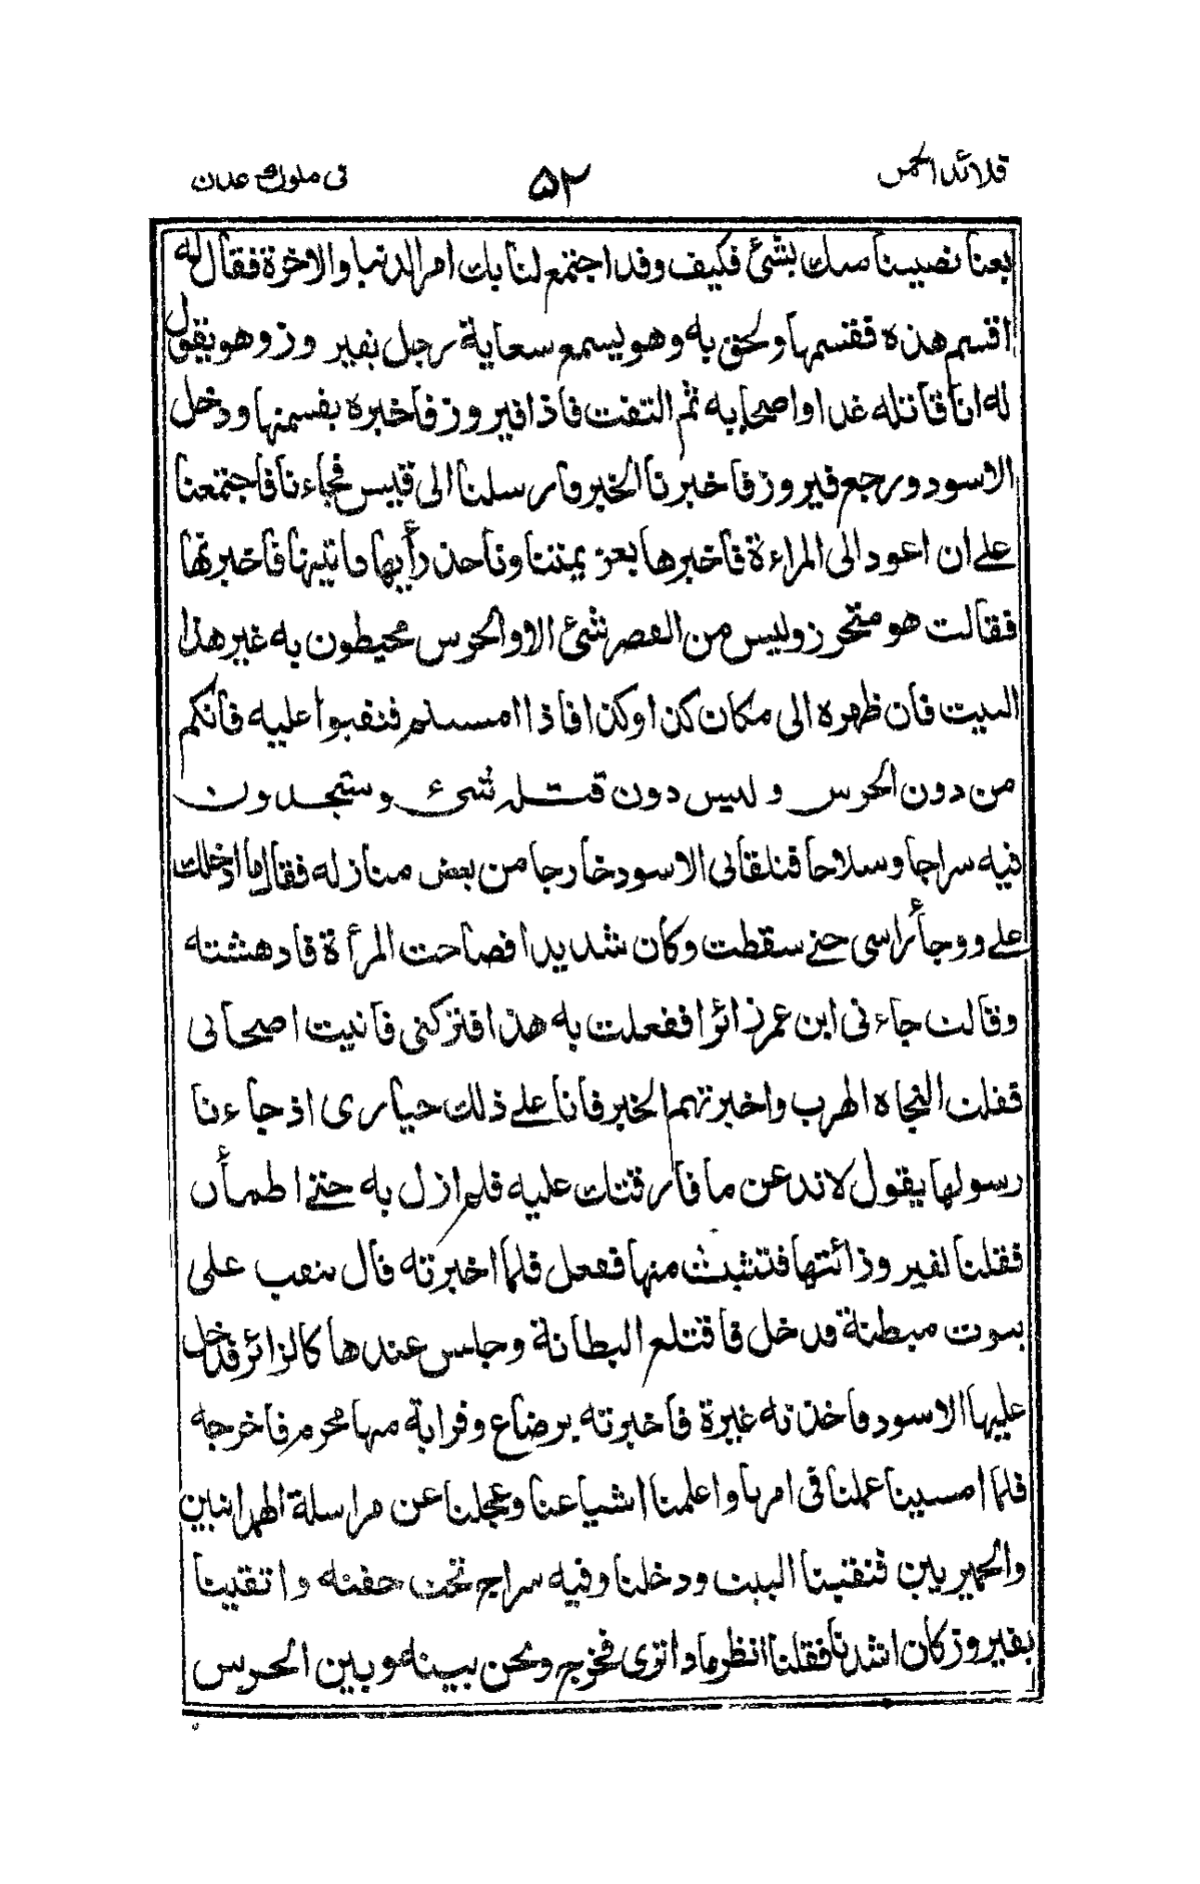 قلائد الجمن
۵۲
فی ملوك عدن
بعنا نصيبنا منك بشئ فكيف وقد اجتمع لنا بك امر الدنيا والاخرة فقال له
اقسم هذه فقسمها ولحق به وهو يسمع سعاية رجل بفيروز وهو يقول
له انا قاتله غدا واصحابه ثم التفت فاذا فيروز فاخبره بقسمتها ودخل
الاسود ورجع فيروز فاخبرنا الخبر فارسلنا الى قيس فجاءنا فاجتمعنا
على ان اعود الى المراءة فاخبرها بعزيمتنا وناخذ رأيها فاتيتها فاخبرتها
فقالت هو متحرز وليس من القصر شئ الا والحرس محيطون به غير هذا
البيت فان ظهره الى مكان كذا وكذا فاذا امسيتم فنقبوا عليه فانكم
من دون الحرس وليس دون قتله شئ وستجدون
فيه سراجا وسلاحا فتلقانى الاسود خارجا من بعض منازله فقال ما ادخلك
على ووجأ راسى حتى سقطت وكان شديدا فصاحت المرأة فادهشته
وقالت جاءنى ابن عمى زائرا ففعلت به هذا فتركنى فاتيت اصحابى
فقلت النجاه الهرب واخبرتهم الخبر فانا على ذلك حيارى اذ جاءنا
رسولها يقول لا ندعن ما فارقتك عليه فلم ازل به حتى اطمأن
فقلنا لفيروز ائتها فتثبت منها ففعل فلما اخبرته قال ننقب على
بيوت مبطنة فدخل فاقتلع البطانة وجلس عندها كالزائر فدخل
عليها الاسود فاخذته غيرة فاخبرته برضاع وقرابة منها محرم فاخرجه
فلما امسينا عملنا فى امرنا واعلمنا اشياعنا وعجلنا عن مراسلة الهمدانيين
والحميريين فنقبنا البيت ودخلنا وفيه سراج تحت جفنه واتقينا
بفيروز كان اشدنا فقلنا انظر ماذا ترى فخرج ونحن بينه وبين الحرس